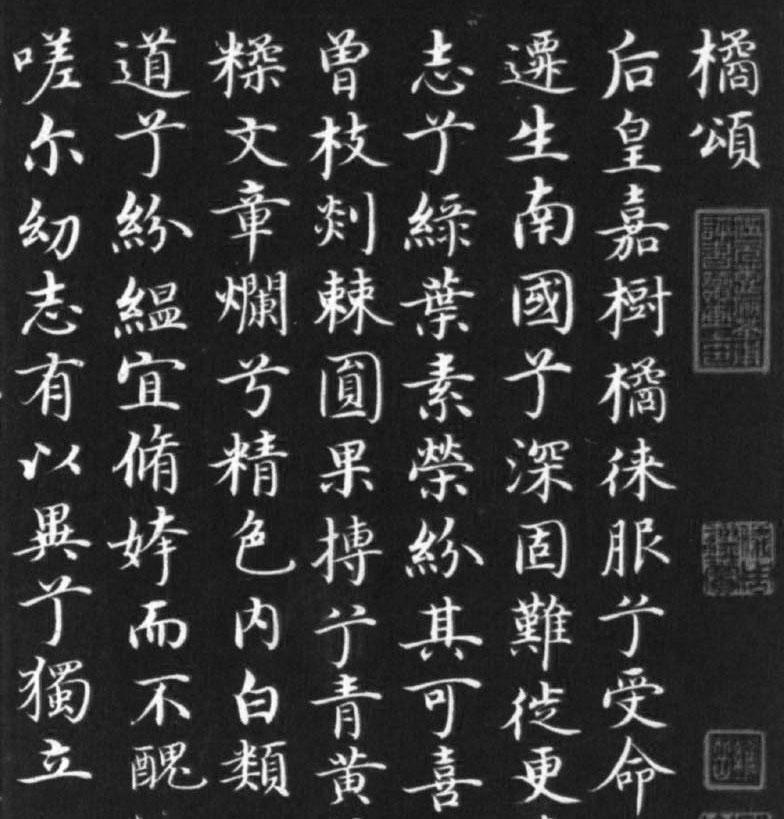 橘頌
后皇嘉樹橘徠服兮受命
遷生南國兮深固難徙更
志兮綠葉素榮紛其可喜
曾枝剡棘圓果摶兮青黃
糅文章爛兮精色内白類
道兮紛緼宜脩姱而不醜
嗟尔幼志有以異兮獨立